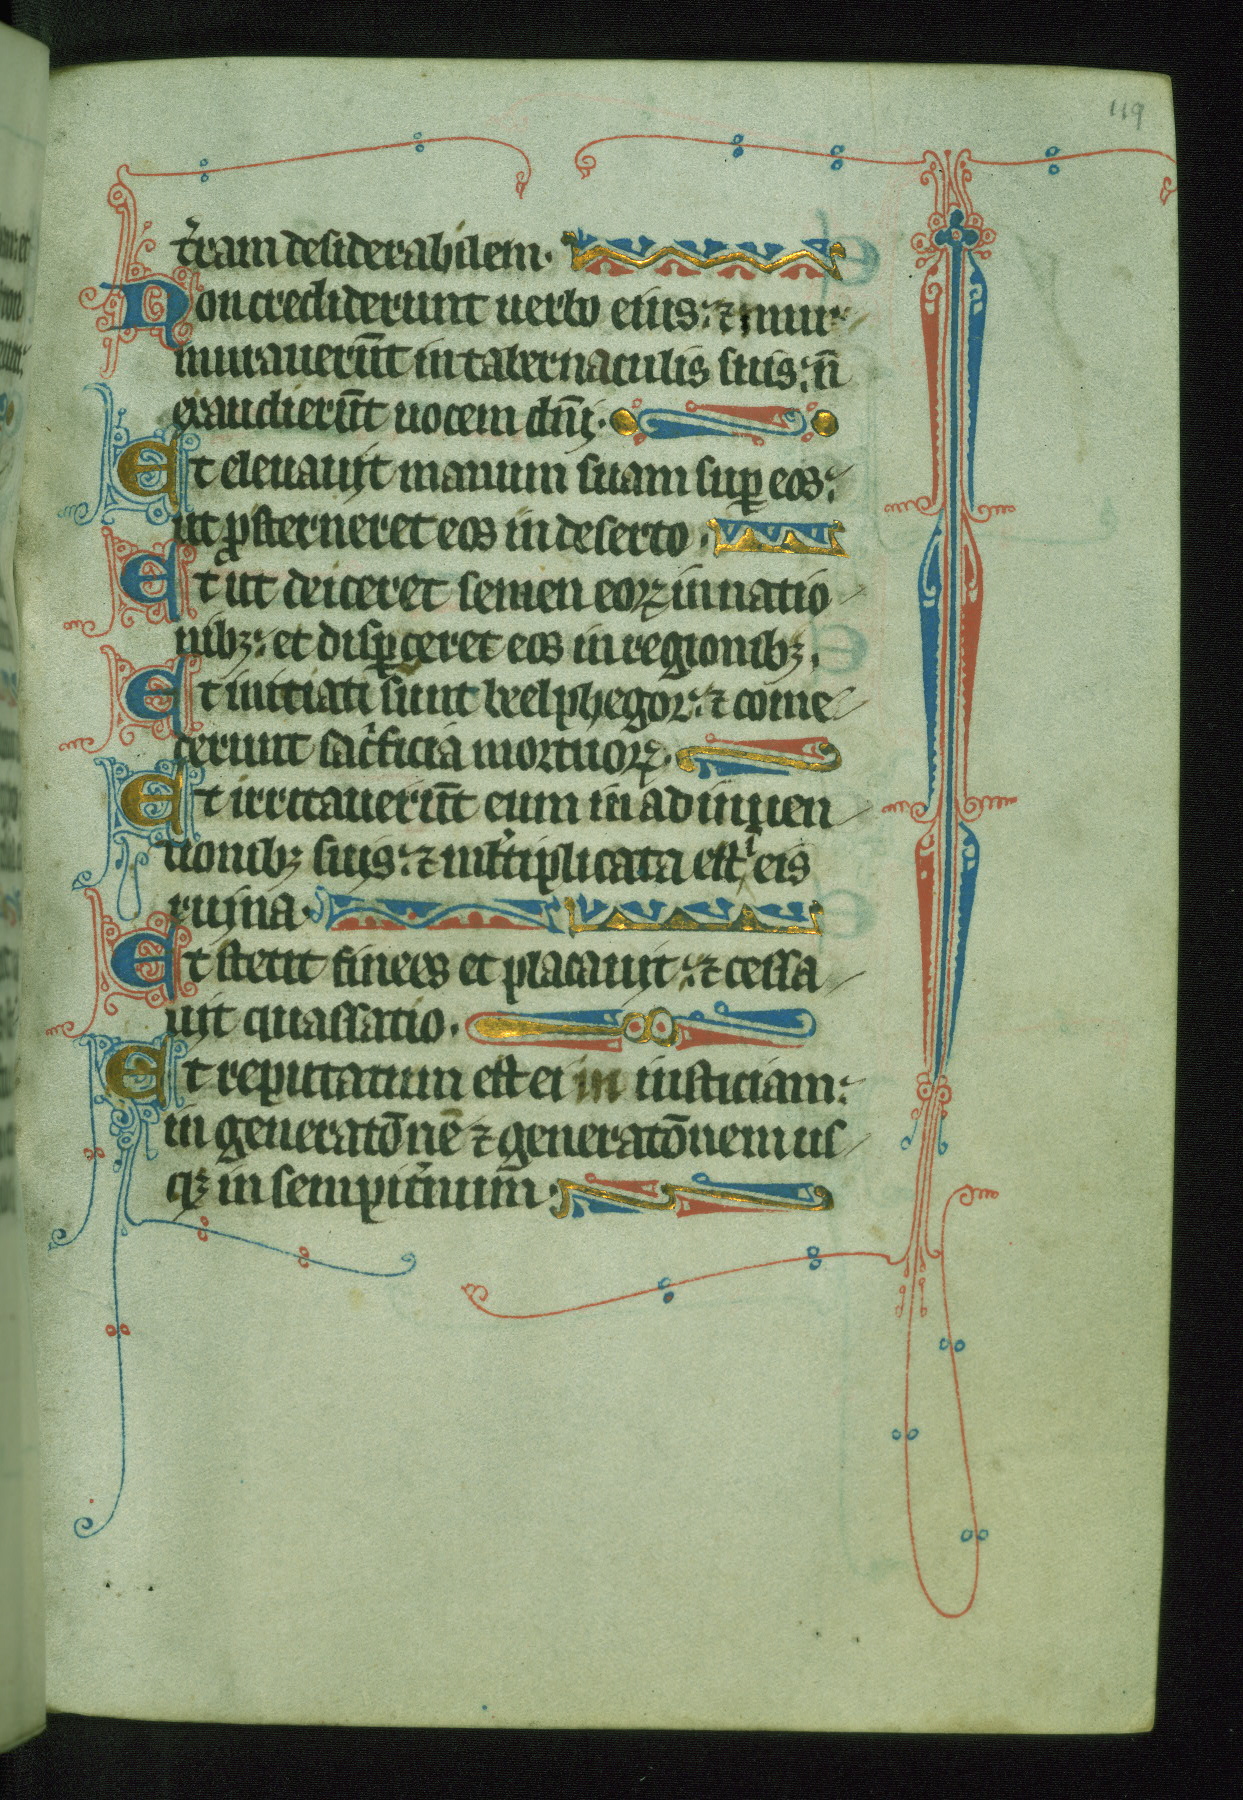 119
t̾ram desiderabilem.
Non crediderunt uerbo eius: ⁊ mur
murauerūt in tabernaculis suis: n̄
exaudierūt uocem dn̄i.
Et eleuauit manum suam suꝑ eos:
ut ꝓsterneret eos in deserto.
Et ut deiceret semen eoꝝ in natio
nibꝫ: et disꝑgeret eos in regionibꝫ.
Et initiati sunt beelphegor: ⁊ come
derunt sac̾ficia mortuoꝝ.
Et irritauerūt eum in adinuen
tionibꝫ suis: ⁊ mlt̾iplicata est i eis
ruina.
Et stetit finees et placauit: ⁊ cessa
uit quassatio.
Et reputatum est ei in iusticiam:
in generatōnē ⁊ generatōnem us
qꝫ in sempit̾num.